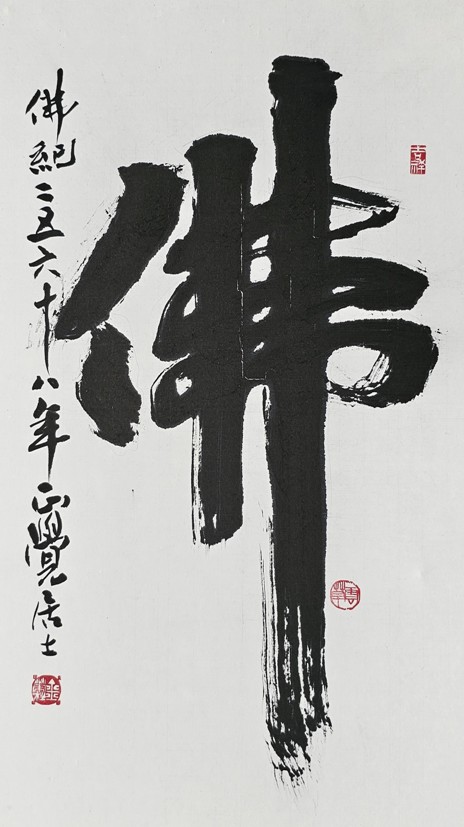 佛
佛紀二五六十八年正覺居士
吉祥